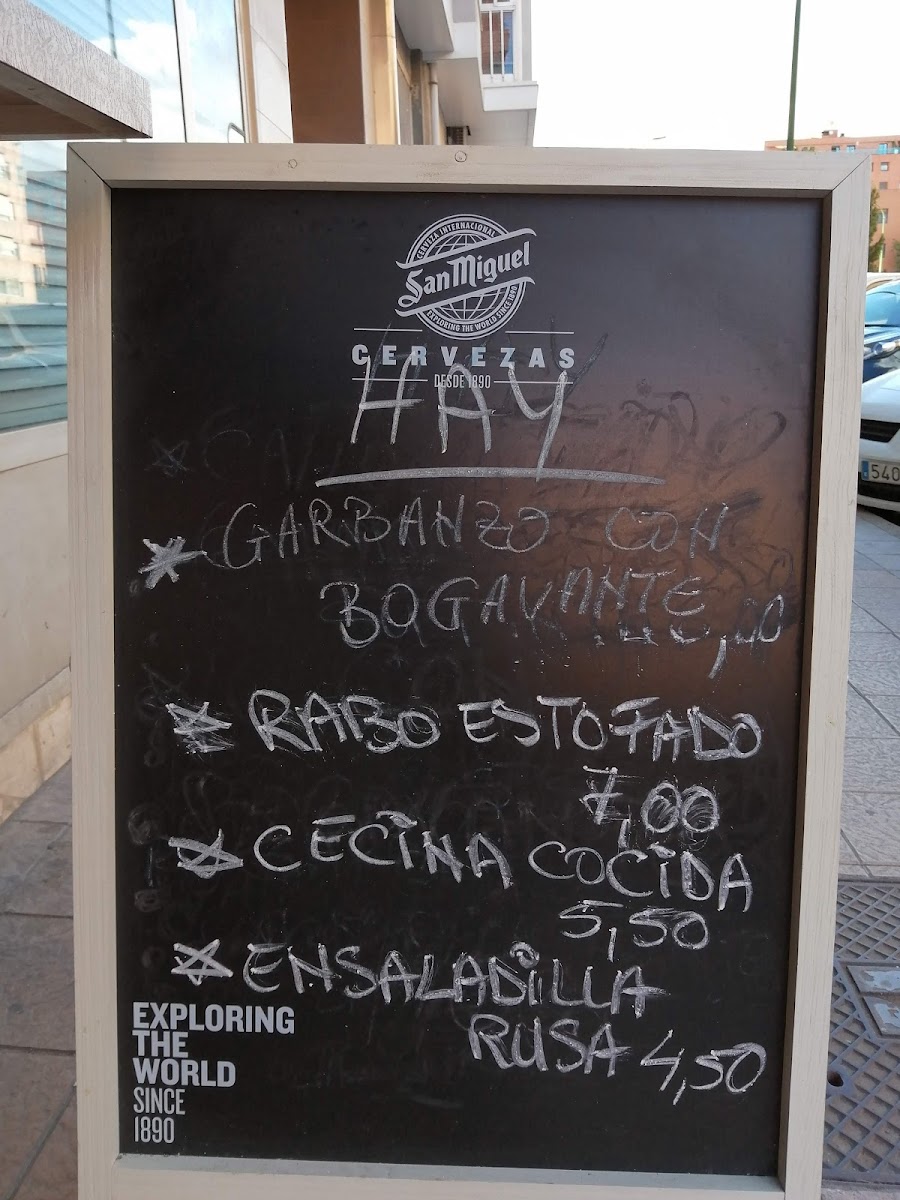 CERVEZA INTERNACIONAL
San Miguel
EXPLORING THE WORLD SINCE 1890
CERVEZAS
DESDE 1890
HAY
* GARBANZO CON
BOGAVANTE
* RABO ESTOFADO
7,00
* CECINA COCIDA
5,50
* ENSALADILLA
RUSA 4,50
EXPLORING
THE
WORLD
SINCE
1890
540